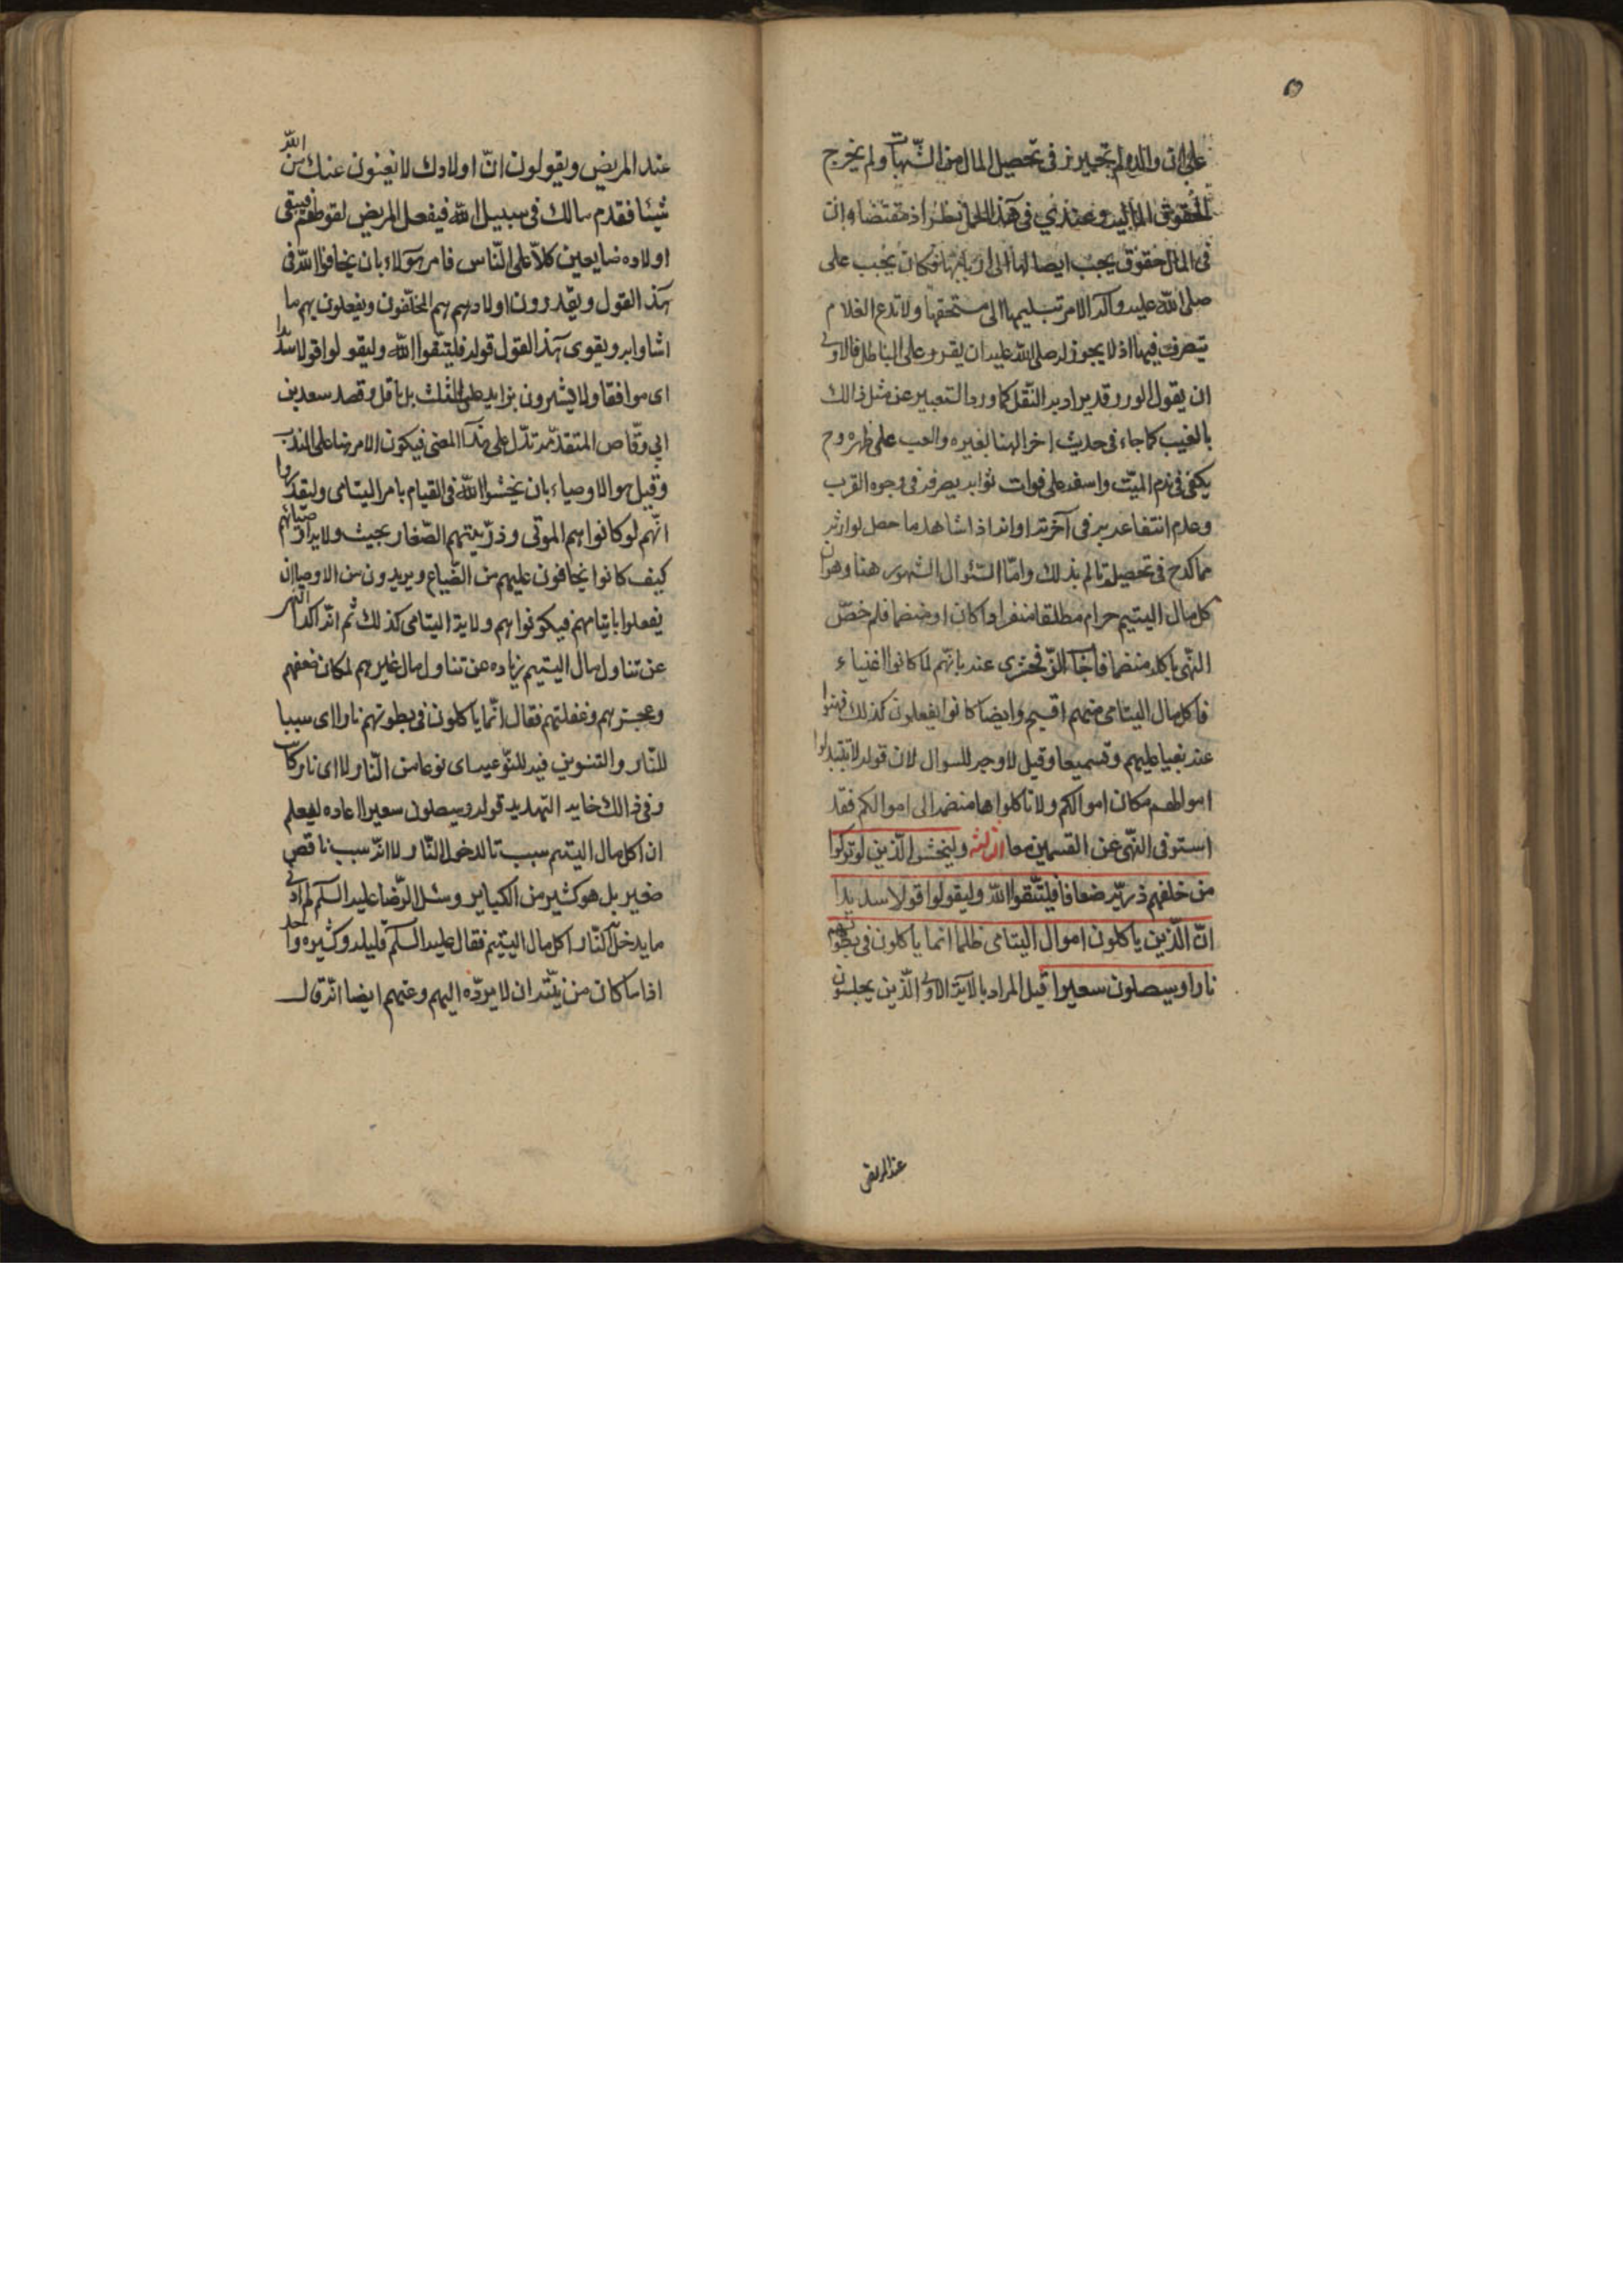 على ان والده لم يتحيرز فى تحصيل المال من الشبهات ولم يخرج
الحقوق المالية وعندى فى هذا الحمل نظر اذ مقتضاه ان
فى المال حقوق يجب ايصالها الى اربابها فكان يجب على
صلى الله عليه وآله الامر بتسليمها الى مستحقها ولا تدع الغلام
يتصرف فيها اذ لا يجوز له صلى الله عليه ان يقرر على الباطل فالاولى
ان يقول الوزر قد يراد به الثقل كما ورد التعبير عن مثل ذالك
بالغيب كما جاء فى حديث اخر الهنا لغيره والعب على ظهره وح
يكفى فى ذم الميت واسفه على فوات ثوابه بصرفه فى وجوه القرب
وعدم انتفاعه به فى آخرته وانه اذا شاهد ما حصل لوارثه
مما كدح فى تحصيله تالم بذلك وامّا السّئوال المشهور هنا وهو ان
كل مال اليتيم حرام مطلقا منفردا كان او منضما فلم خصّ
النّهى باكله منضما فاجاب الزّمخشرى عنه بانّهم لما كانوا اغنياء
فاكل مال اليتامى منهم اقبح وايضا كانوا يفعلون كذلك فنهوا
عنه نعيا عليهم وتسميعا وقيل لا وجه للسوال لان قوله لا تتبدلوا
اموالهم مكان اموالكم ولا تاكلوها منضمه الى اموالكم فقد
استوفى النّهى عن القسمين معا الثالثة وليخش الّذين لو تركوا
من خلفهم ذريّة ضعافا فليتّقوا الله وليقولوا قولا سديدا
انّ الّذين ياكلون اموال اليتامى ظلما انما ياكلون فى بطونهم
نارا وسيصلون سعيرا قيل المراد بالآية الاولى الّذين يجلسون
عند المريض
عند المريض ويقولون انّ اولادك لا يغنون عنك من الله
شيئا فقدم مالك فى سبيل الله فيفعل المريض لقولهم فيبقى
اولاده ضايعين كلاّ على النّاس فامر هؤلاء بان يخافوا الله فى
هذا القول ويقدرون اولادهم هم المخلّفون ويفعلون بهم ما
اشاوا به ويقوى هذا القول قوله فليتّقوا الله وليقولوا قولا سديدا
اى موافقا ولا يشيرون بزايد على الثلث بل باقل وقصه سعد بن
ابي وقّاص المتقدّمه تدّل على هذا المعنى فيكون الامر هنا على الندب
وقيل هو الاوصياء بان يخشوا الله فى القيام بامر اليتامى وليقدروا
انّهم لو كانوا هم الموتى وذرّيتهم الصّغار بحيث ولايه اوصيائهم
كيف كانوا يخافون عليهم من الضّياع ويريدون من الاوصياء ان
يفعلوا بايتامهم فيكونوا هم ولاية اليتامى كذلك ثم انّه اكد النهى
عن تناول مال اليتيم زياده عن تناول مال غيرهم لمكان ضعفهم
وعجزهم وغفلتهم فقال انّما ياكلون فى بطونهم نارا اى سببا
للنّار والتنوين فيه للنّوعيه اى نوعا من النّار لا اى نار كانت
وفى ذالك غايه التهديد قوله وسيصلون سعيرا اعاده ليعلم
ان اكل مال اليتيم سبب تام لدخول النّار لا انّه سبب ناقص
صغير بل هو كثير من الكباير وسئل الرّضا عليه السلم كم ادنى
ما يدخل النّار اكل مال اليتيم فقال عليه السلم قليله وكثيره واحد
اذا ما كان من نيّته ان لا يردّه اليهم وعنهم ايضا انّه قال